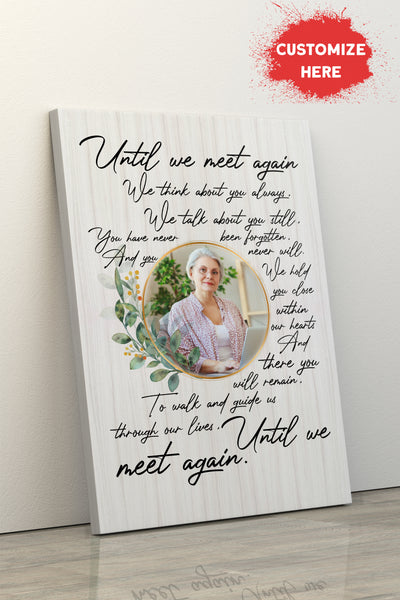 CUSTOMIZE
HERE
Until we meet again
We think about you always.
We talk about you still.
You have never been forgotten.
And you never will.
We hold
you close
within
our hearts
And
there you
will remain.
To walk and guide us
through our lives. Until we
meet again.
meet again. Until we